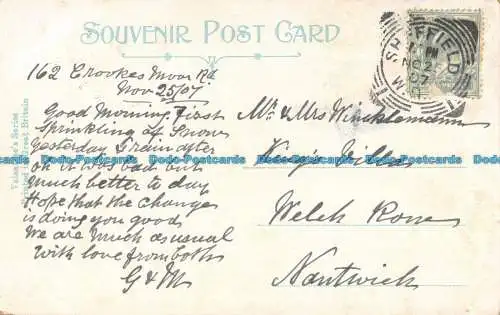 SOUVENIR POST CARD
162 Crookes Moor Rd
Nov 25/07
Good Morning. First
Sprinkling of Snow
yesterday & rain after
oh it was bad but
much better to day
Hope that the change
is doing you good
We are much as usual
With love from both
G & M
Mr & Mrs Wincklemann
King's Villas
Welch Row
Nantwich
SHEFFIELD
NO 2
07
Valentine's Series
Printed in Great Britain
Dodo-Postcards Dodo-Postcards Dodo-Postcards Dodo-Postcards Dodo-Postcards Dodo-Postcards